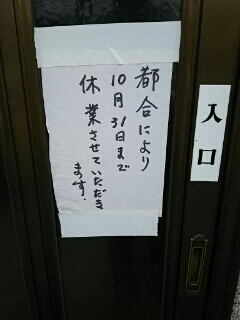 都合により
10月31日まで
休業させていただき
ます.
入口